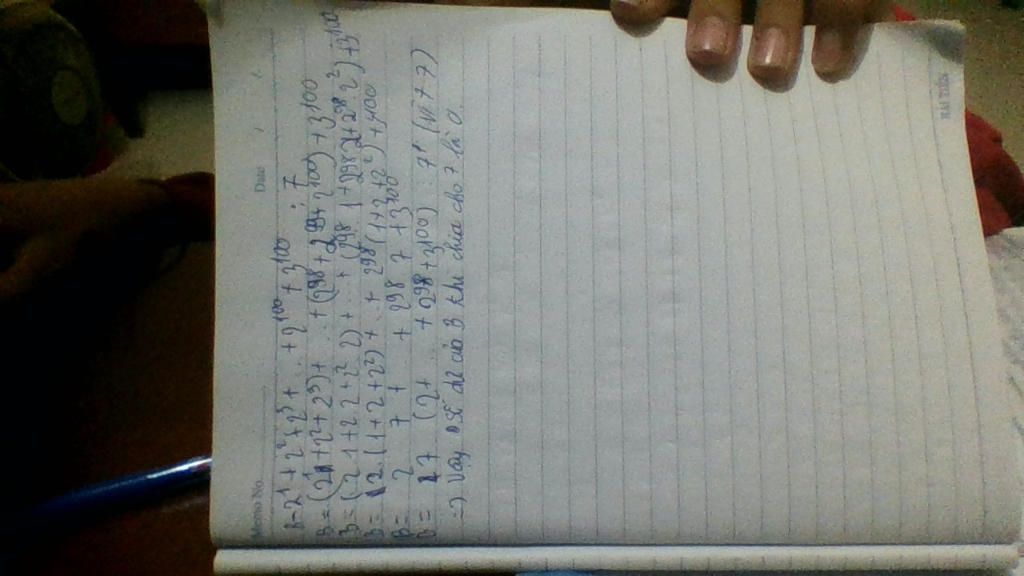 Memo No. Date / /
B = 2¹ + 2² + 2³ + ... + 2¹⁰⁰ + 3¹⁰⁰ : 7
B = (2¹ + 2² + 2³) + ... + (2⁹⁸ + 2⁹⁹ + 2¹⁰⁰) + 3¹⁰⁰
B = (2 1 + 2 2 + 2² 2) + ... + (2⁹⁸ 1 + 2⁹⁸ 2 + 2⁹⁸ 2²) + 3¹⁰⁰
B = 2 (1 + 2 + 2²) + ... + 2⁹⁸ (1 + 2 + 2²) + 3¹⁰⁰
B = 2 7 + + 2⁹⁸ 7 + 3¹⁰⁰
B = 7 (2 + ... + 2⁹⁸ + 3¹⁰⁰) : 7 (Vì 7 7)
=> Vậy số dư của B khi chia cho 7 là 0.
HẢI TIẾN